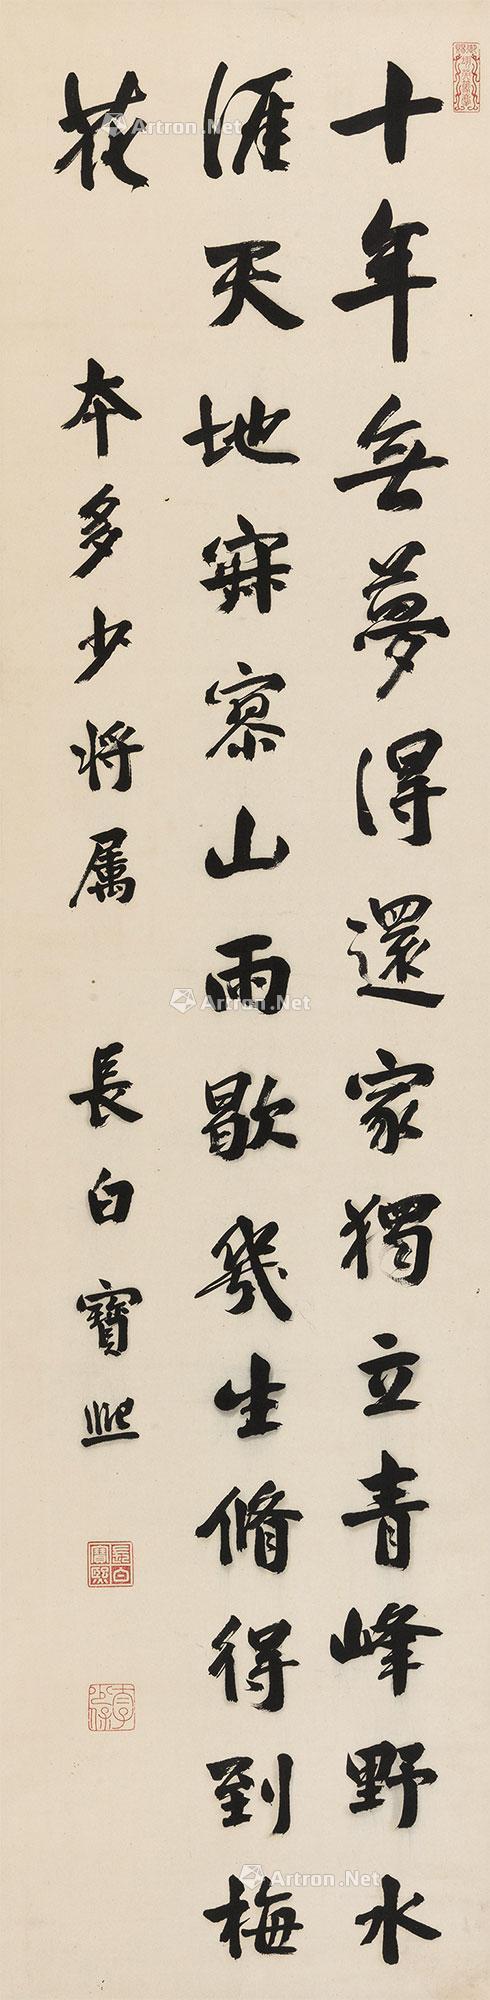 十年無夢得還家獨立青峰野水
涯天地寂寥山雨歇幾生脩得到梅
花
本多少将属
長白寶熙
長白寶熙
Artron.Net
Artron.Net
Artron.Net
Artron.Net